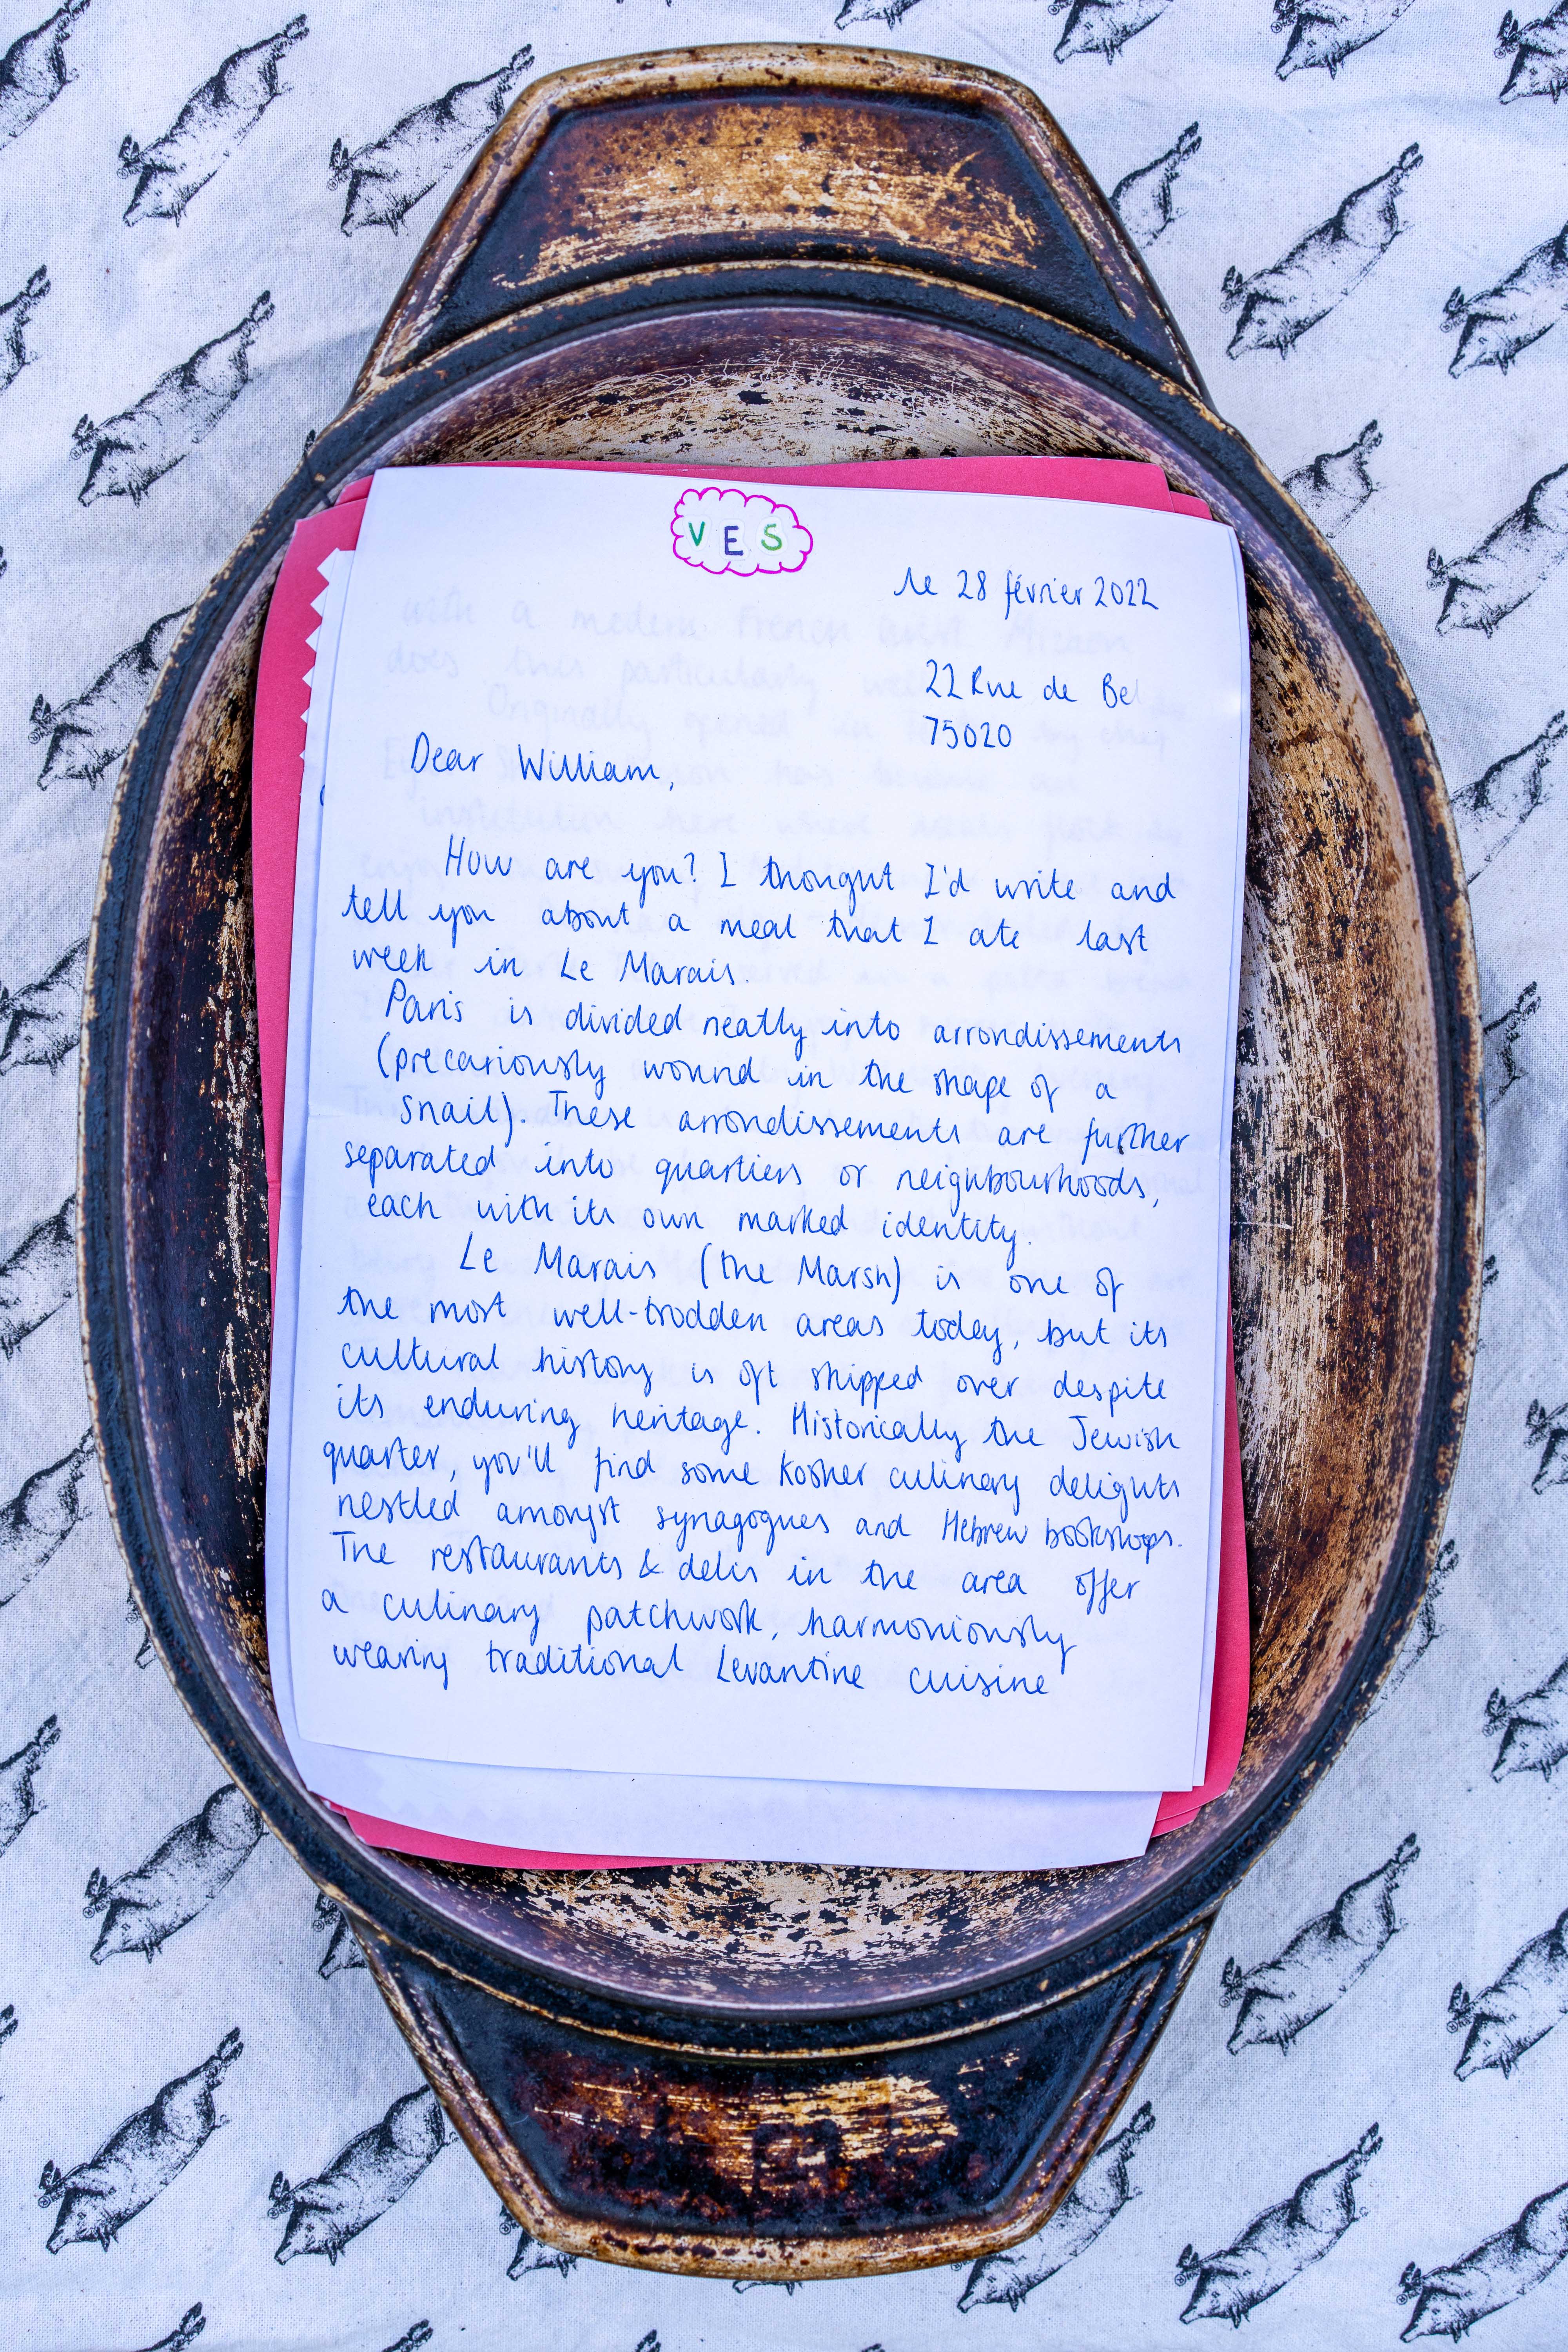 VES
le 28 février 2022
22 Rue de Bel
75020
Dear William,
How are you? I thought I'd write and
tell you about a meal that I ate last
week in Le Marais.
Paris is divided neatly into arrondissements
(precariously wound in the shape of a
snail). These arrondissements are further
separated into quartiers or neighbourhoods,
each with its own marked identity.
Le Marais (the Marsh) is one of
the most well-trodden areas today, but its
cultural history is oft skipped over despite
its enduring heritage. Historically the Jewish
quarter, you'll find some kosher culinary delights
nestled amongst synagogues and Hebrew bookshops.
The restaurants & delis in the area offer
a culinary patchwork, harmoniously
weaving traditional Levantine cuisine
with a modern French twist. Miznon
does this particularly well
Originally opened in